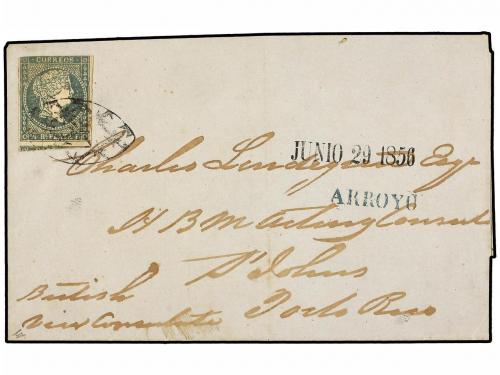 CORREOS
JUNIO 29 1856
Charles Lindegren Esqr
ARROYO
H B M Acting Consul
St Johns
Porto Rico
British
Vice Consulate